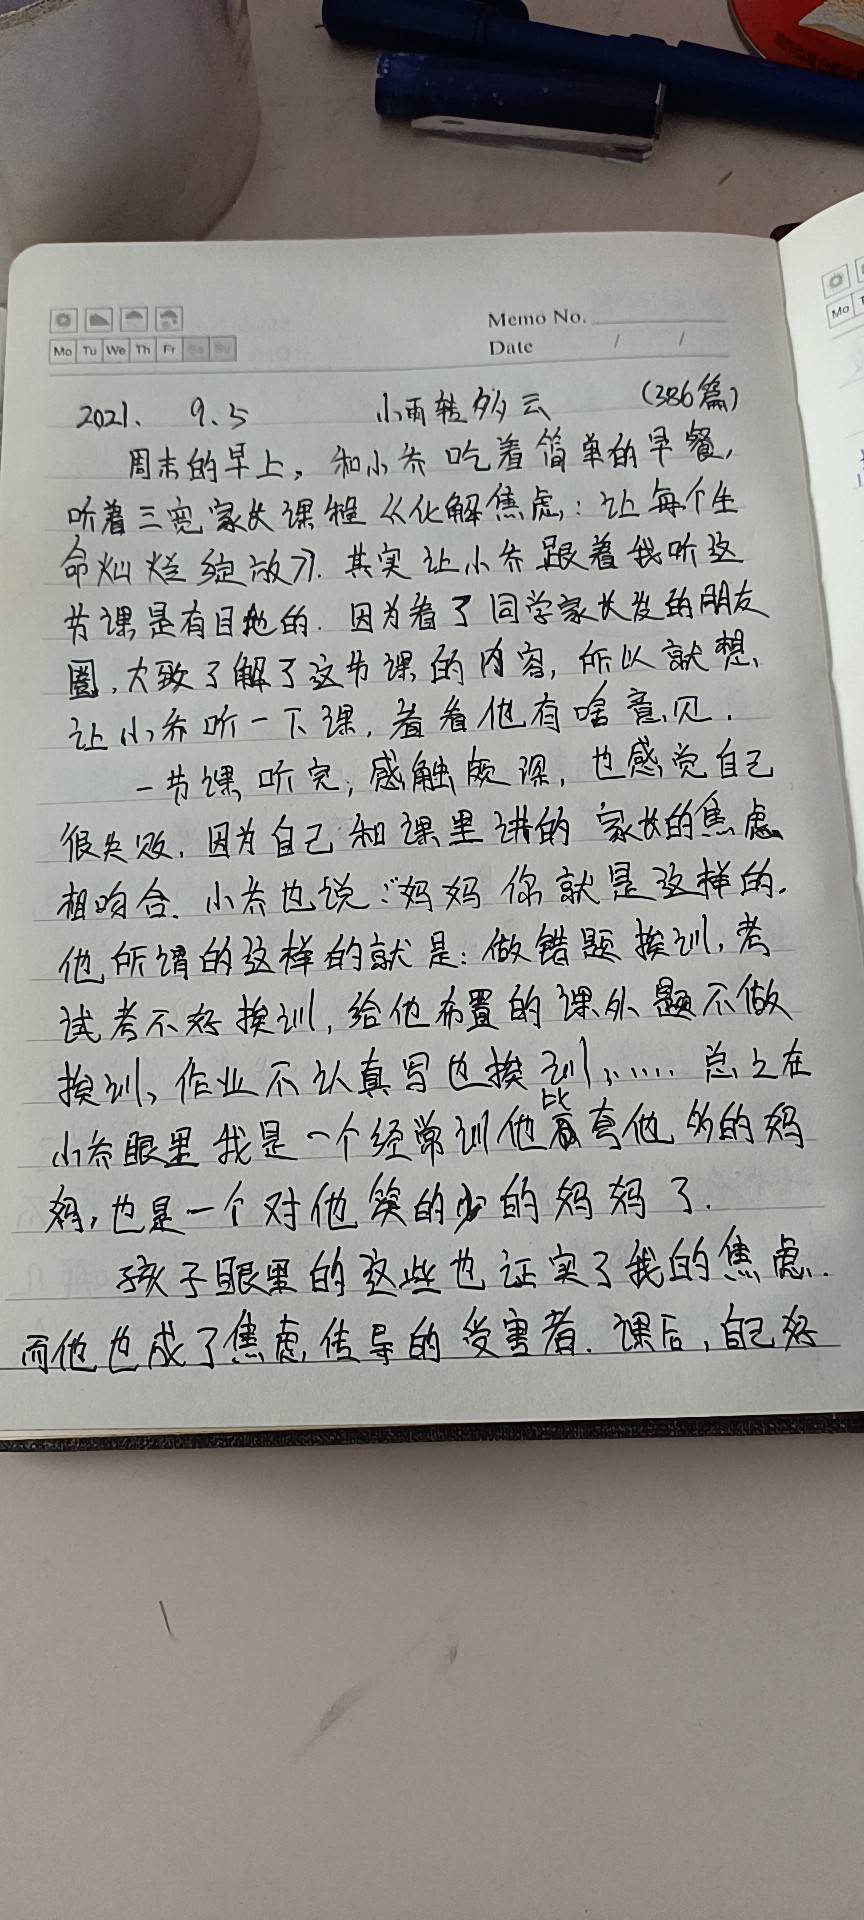 Memo No.
Mo Tu We Th Fr Sa Su
Date / /
2021. 9.5 小雨转多云 (386篇)
周末的早上，和小乔吃着简单的早餐，
听着三宽家长课程《化解焦虑：让每个生
命灿烂绽放》. 其实让小乔跟着我听这
节课是有目地的. 因为看了同学家长发的朋友
圈，大致了解了这节课的内容，所以就想
让小乔听一下课，看看他有啥意见.
一节课听完，感触颇深，也感觉自己
很失败，因为自己和课里讲的家长的焦虑
相吻合. 小乔也说:“妈妈你就是这样的.
他所谓的这样的就是：做错题挨训，考
试考不好挨训，给他布置的课外题不做
挨训、作业不认真写也挨训，…… 总之在
小乔眼里我是一个经常训他比夸他多的妈
妈，也是一个对他笑的少的妈妈了.
孩子眼里的这些也证实了我的焦虑.
而他也成了焦虑传导的受害者. 课后，自己好
Mo